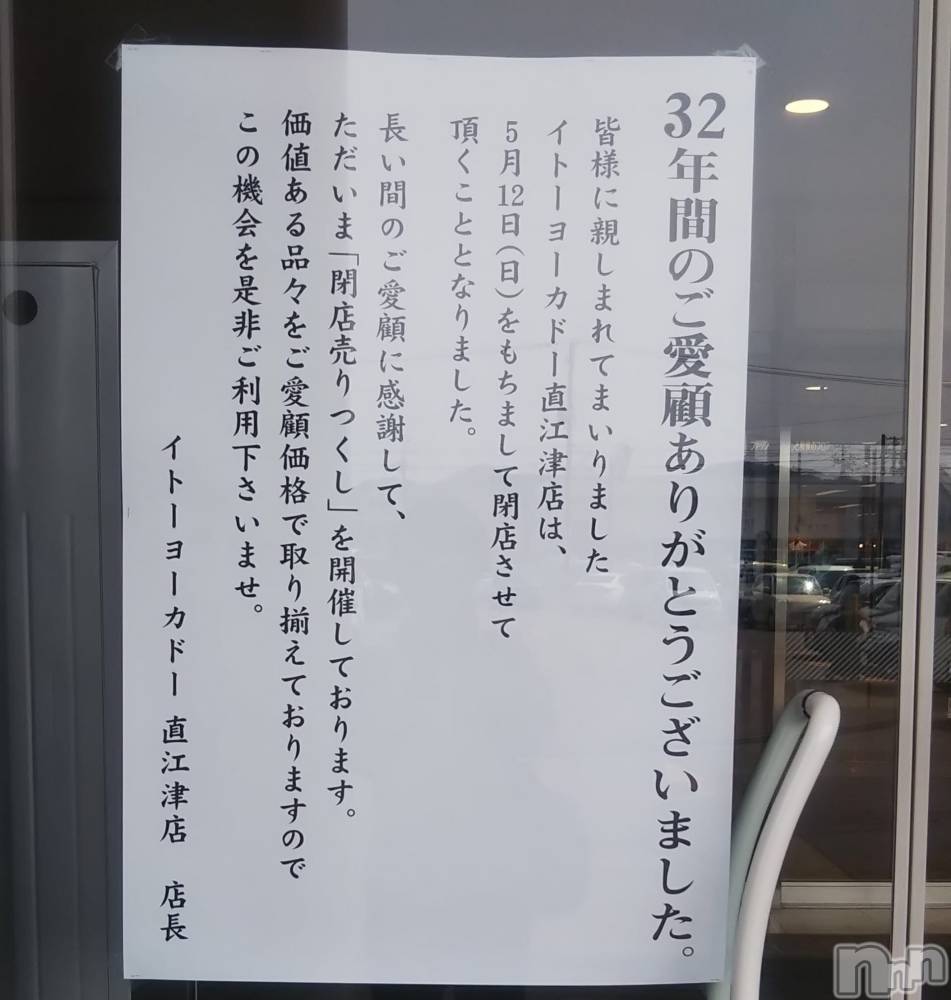 32年間のご愛顧ありがとうございました。
皆様に親しまれてまいりました
イトーヨーカドー直江津店は、
5月12日(日)をもちまして閉店させて
頂くこととなりました。
長い間のご愛顧に感謝して、
ただいま「閉店売りつくし」を開催しております。
価値ある品々をご愛顧価格で取り揃えておりますので
この機会を是非ご利用下さいませ。
イトーヨーカドー 直江津店　店長
nnn